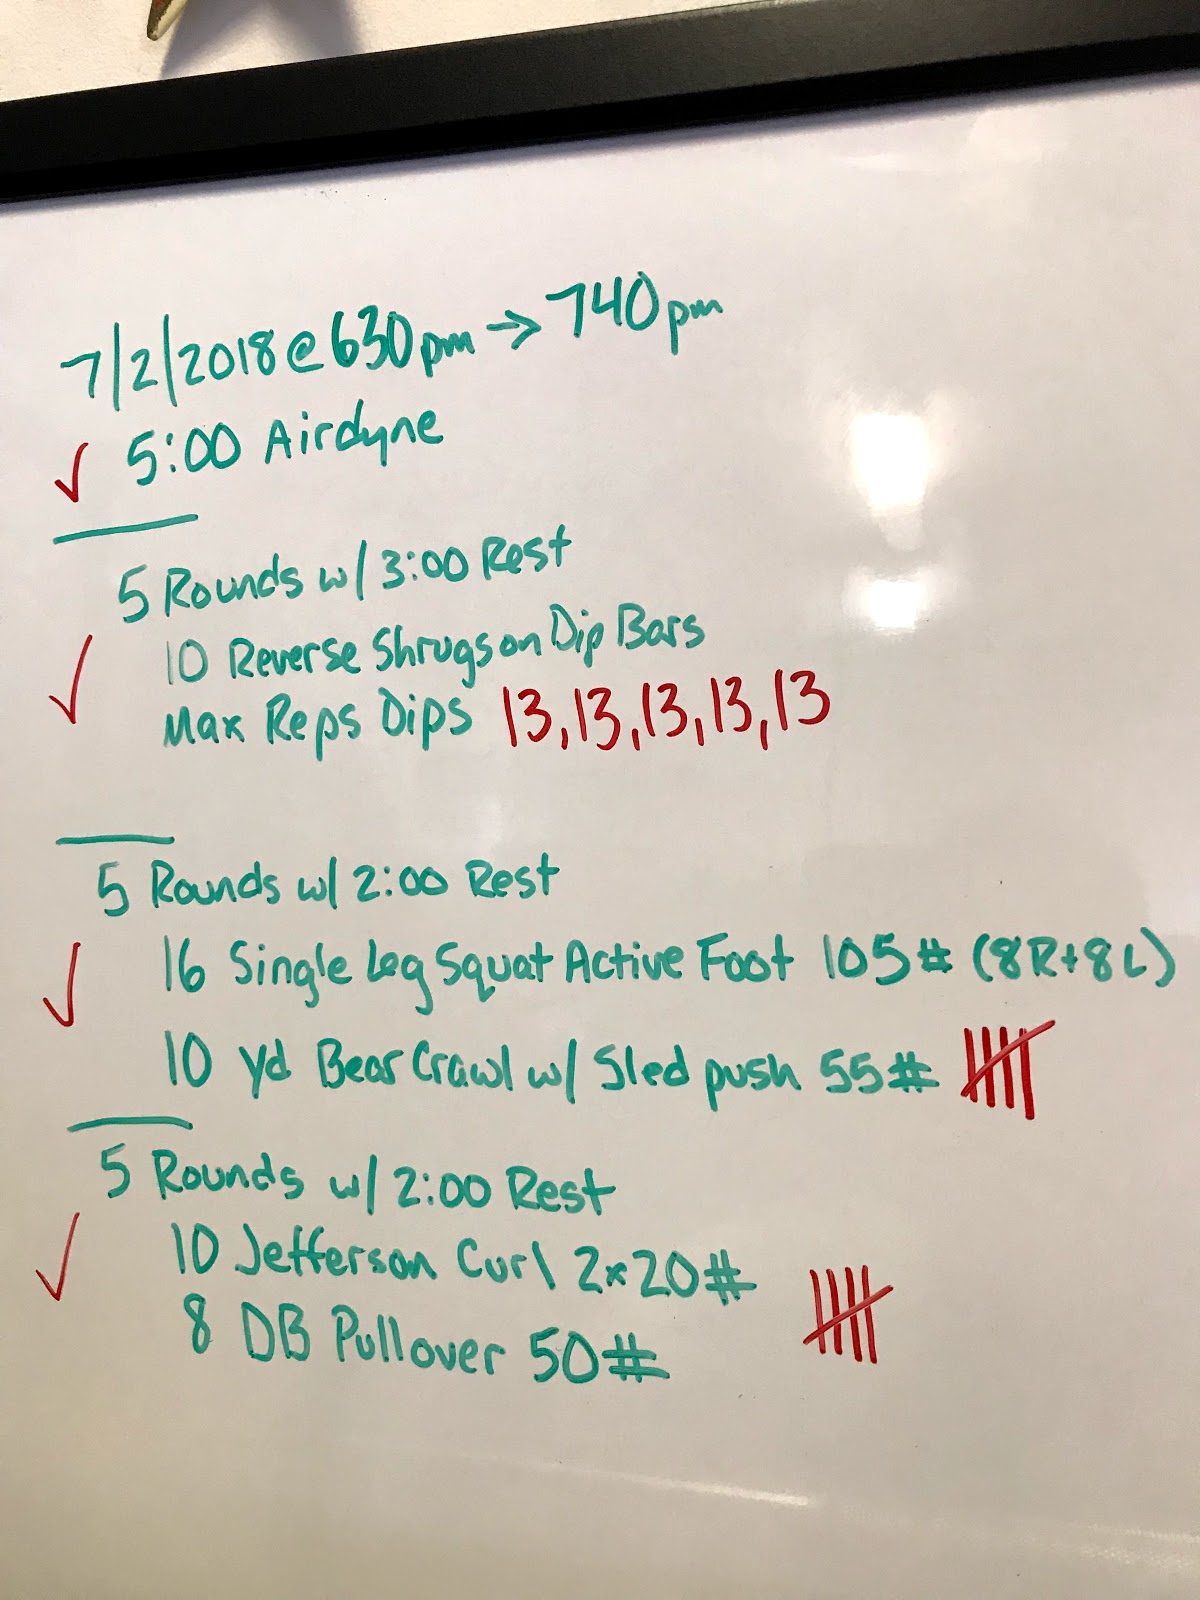 7/2/2018 @ 630pm → 740pm
✓ 5:00 Airdyne
5 Rounds w/ 3:00 Rest
✓ 10 Reverse Shrugs on Dip Bars
Max Reps Dips 13, 13, 13, 13, 13
5 Rounds w/ 2:00 Rest
✓ 16 Single Leg Squat Active Foot 105# (8R+8L)
10 yd Bear Crawl w/ Sled push 55# 卌
5 Rounds w/ 2:00 Rest
✓ 10 Jefferson Curl 2x20# 卌
8 DB Pullover 50#